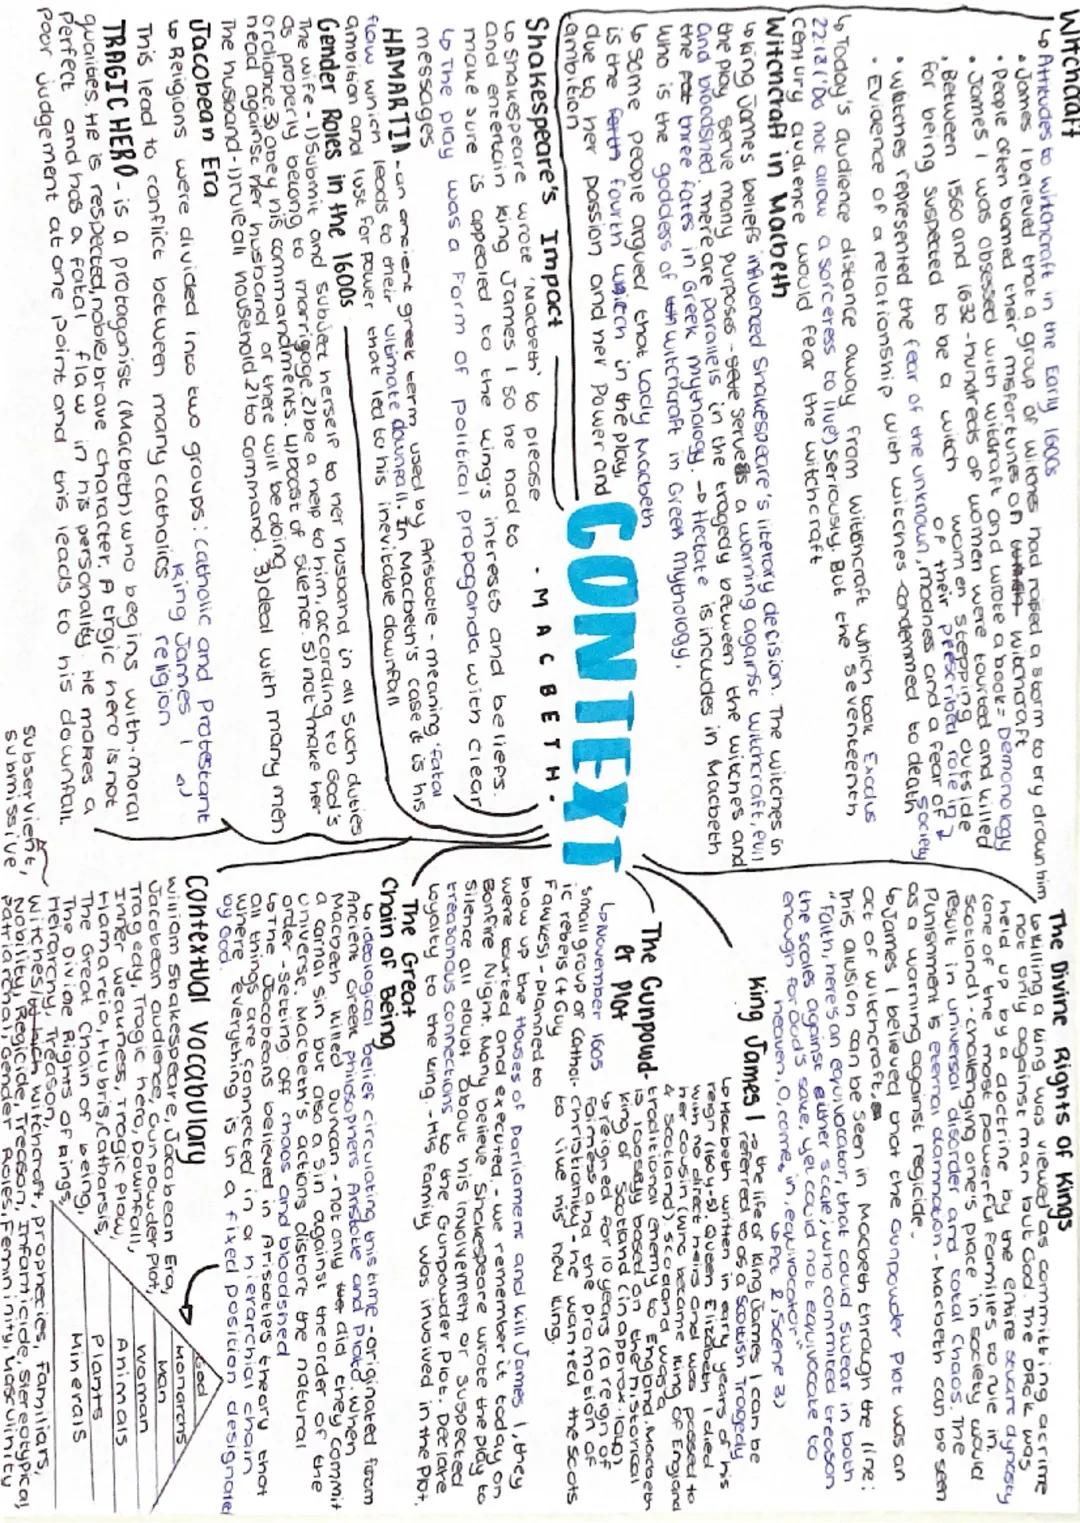 CONTEXT
- MACBETH -
Witchcraft
↳ Attitudes to witchcraft in the Early 1600s
• James I believed that a group of witches had raised a storm to try drown him
• People often blamed their misfortunes on witchcraft
• James I was obsessed with witchcraft and wrote a book = Demonology
• Between 1560 and 1632 - hundreds of women were tourted and killed
for being suspected to be a witch
women stepping outside
of their prescribed role in society
• Witches represented the fear of the unknown, madness and a fear of
• Evidence of a relationship with witches condemmed to death
↳ Today's audience distance away from witchcraft which took Exodus
22:18 (Do not allow a sorceress to live) seriously. But the seventeenth
century audience would fear the witchcraft
Witchcraft in Macbeth
↳ King James beliefs influenced Shakespeare's literary decision. The witches in
the play serve many purposes - serves a warning against witchcraft, evil
and bloodshed. There are parallels in the tragedy between the witches and
the three fates in Greek mythology. → Hectate is includes in Macbeth
who is the goddess of witchcraft in Greek Mythology.
↳ Some people argued that Lady Macbeth
is the fourth witch in the play,
due to her passion and her power and
ambition
Shakespeare's Impact
↳ Shakespeare wrote 'Macbeth' to please
and entertain King James I so he had to
make sure is appealed to the king's intrests and beliefs.
↳ The play was a form of political propaganda with clear
messages
HAMARTIA - an ancient greek term used by Aristotle - meaning 'fatal
flaw which leads to their ultimate downfall. In Macbeth's case it is his
ambition and lust for power that led to his inevitable downfall
Gender Roles in the 1600s
The wife - 1) Submit and subject herself to her husband in all such duties
as properly belong to marrigage. 2) be a help to him, according to God's
ordiance. 3) Obey his commandments. 4) boast of silence. 5) not make her
head against her husband or there will be doing
The husband - 1) rule all household 2) to command. 3) deal with many men
Jacobean Era
↳ Religions were divided into two groups: Catholic and Protestant
King James I religion
This lead to conflict between many cathoics
TRAGIC HERO - is a protagonist (Macbeth) who begins with moral
qualities. He is respected, noble, brave character. A trgic hero is not
perfect and has a fatal flaw in his personality. He makes a
poor judgement at one point and this leads to his downfall.
The Divine Rights of Kings
↳ killing a king was viewed as committing a crime
not only against man but God. The DRoK was
held up by a doctrine by the entire Stuart dynasty
(one of the most powerful families to rule in
Scotland). - Challenging one's place in society would
result in universal disorder and total chaos. The
Punishment is eternal damnation - Macbeth can be seen
as a warning against regicide.
↳ James I believed that the Gunpowder Plot was an
act of witchcraft.
This alusion can be seen in Macbeth through the line:
"Faith, here's an equivocator, that could swear in both
the scales against either scale; who commited treason
enough for God's sake, yet could not equivocate to
heaven, O, come, in, equivocator"
King James I
→ the life of King James I can be
referred to as a Scottish Tragedy
↳ Macbeth written in early years of his
reign (1604-5) Queen Elizabeth I died
with no direct heirs and was passed to
her cousin (who became King of England
& Scotland). Scotland was a
traditional enemy to England. Macbeth
is loosely based on the historical
King of Scotland (in approx 1040)
↳ reigned for 10 years (a reign of
fairness and the promotion of
christianity - he wanted the Scots
to live his new king.
The Gunpowd-
er Plot
↳ November 1605
small group of Cathol-
ic rebels (+ Guy
Fawkes) - planned to
blow up the Houses of Parliament and kill James I, they
were tourted and executed. - we remember it today on
Bonfire Night. Many believe Shakespeare wrote the play to
silence all doubt about his involvement or suspected
treasonous connections to the Gunpowder Plot. Declare
loyalty to the king. - His family was involved in the Plot.
The Great
Chain of Being
↳ ideological belief circulating this time - originated from
Ancient Greek philosophers Aristotle and Plato. When
Macbeth killed Duncan - not only did they commit
a carnal sin but also a sin against the order of the
universe. Macbeth's actions distort the natural
order - setting off chaos and bloodshed
↳ The Jacobeans believed in Arisotles theory that
all things are connected in a hierarchial chain
where everything is in a fixed position designated
by God.
God
Monarchs
Man
Woman
Animals
Plants
Minerals
Contextual Vocabulary
William Shakespeare, Jacobean Era,
Jacobean audience, Gunpowder Plot,
Tragedy, Tragic hero, Downfall,
Inner weakness, Tragic Flaw,
Hamartia, Hubris, Catharsis,
The Great Chain of being,
The Divine Rights of Kings,
Heirarchy, Treason,
Witches/witchcroft, prophecies, Familiars,
Nobility, Regicide, Treason, Infanticide, Stereotypical
Patriarchal, Gender Roles, Femininity, Masculinity
subservient,
submissive